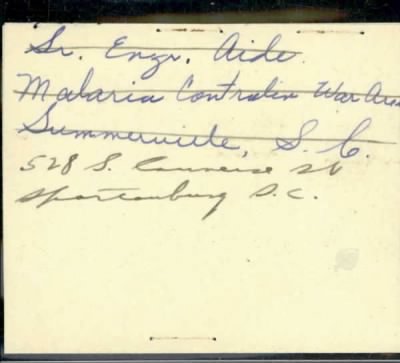 Sr. Engr. Aide.
Malaria Control in War Areas
Summerville, S. C.
528 S. St
Spartanburg S.C.